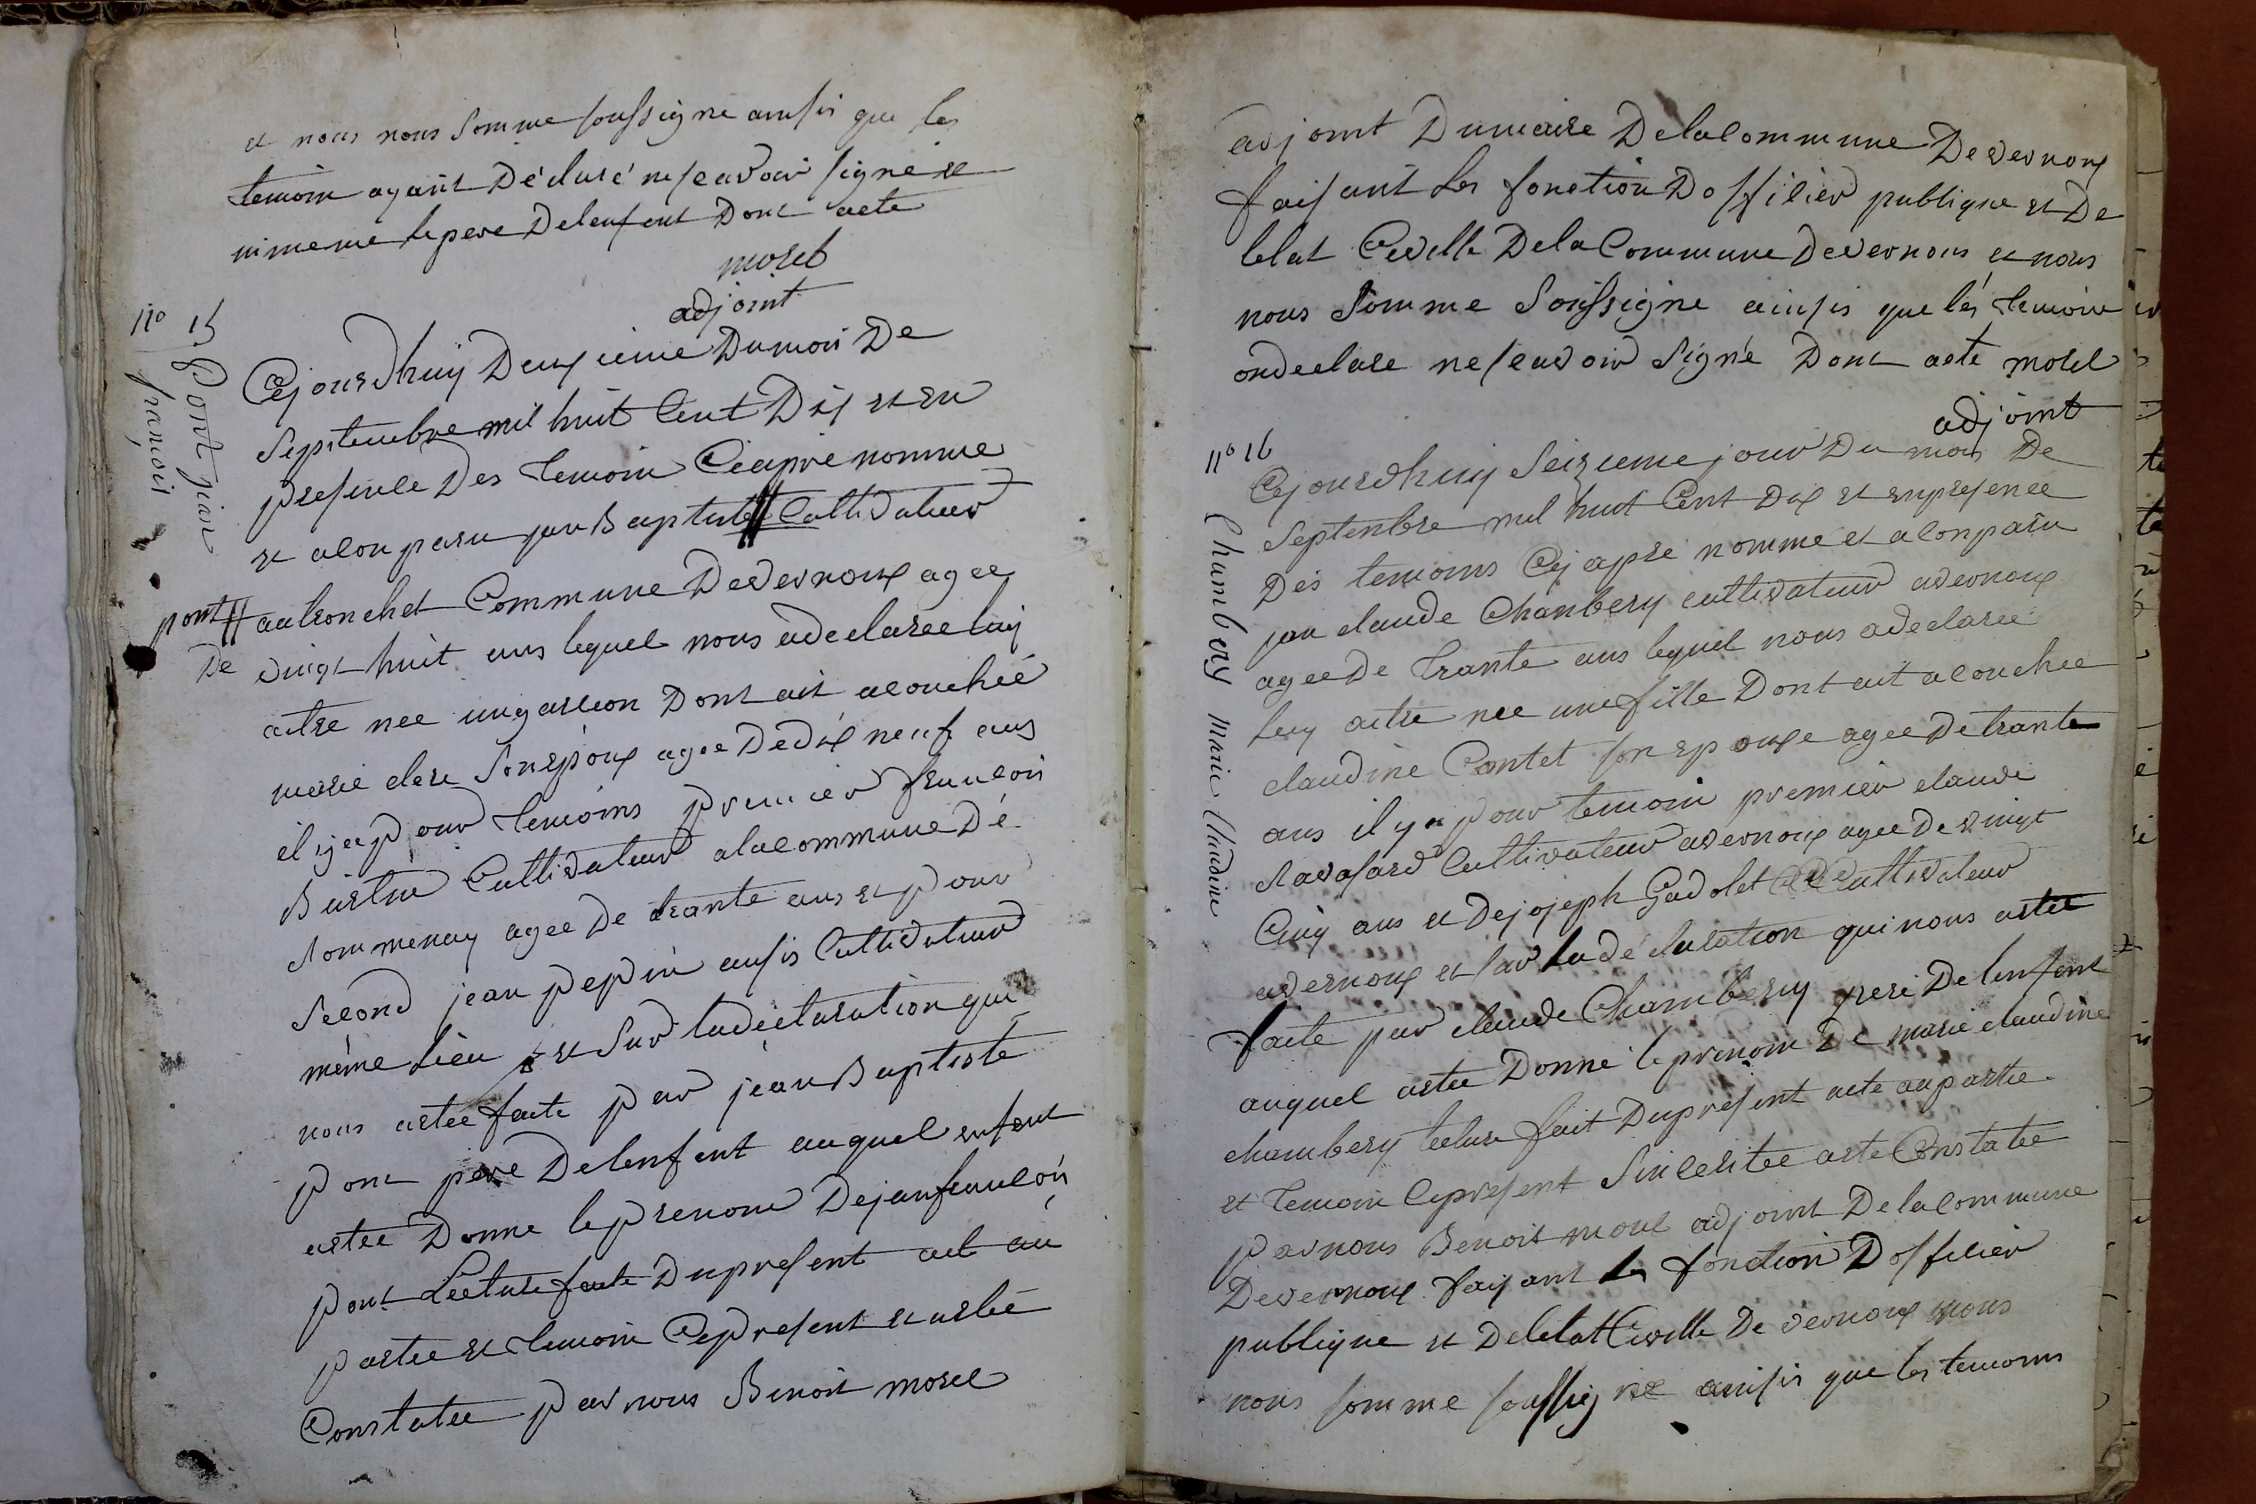 et nous nous somme soussigne ainsis que les
temoin ayant Déclaré ne scavoir signé et
ni meme le pere Delenfent Dont acte
morel
adjoint
no 15
pont jean
françois
Cejourdhuy Deuxieme Dumois De
Septembre mil huit Cent Dix et en
presence Des temoin Ci apré nomme
et a Conparu jan Baptiste // Cultivateur
pont // au tronchet Commune Devernoux agee
De vingt huit ans lequel nous a declaree luy
aitre nee un garcon Dont ait acouchée
marie clere Son epoux agee De dix neuf ans
il y a pour temoins premier francois
Cultivateur a la commune Dé
Sommenay agee De trante ans et pour
Second jean pepin ausis Cultivateur
même Lieu et Sur la déclaration qui
nous astee faite par jean Baptiste
pont pere Delenfent auquel enfent
astee Donne le prenom De jan francois
pont Lecture faite Du present acte au
partee et temoin Ce present et astée
Constatee par nous Benoit morel
adjoint Dumaire Delacommune Devernoux
faisant les fonction Dofficier publique et De
letat Civille Dela Commune Devernoux et nous
nous Somme Soussigne ainsis que lés temoin
on declare ne scavoir Signé Dont acte morel
adjoint
no 16
Chambery marie Claudine
Cejourdhuy Seizieme jour Du mois De
Septembre mil huit Cent Dix et en presence
Dés temoins Cy apré nomme et a Conparu
jan claude Chanbery cultivateur avernoux
agee De trante ans lequel nous a declaree
luy aitre nee une fille Dont ait acouchee
claudine Contet son epouxe agee De trante
ans il y a pour temoin premier claude
Cultivateur avernoux agee De vingt
Cinq ans et De joseph Gadolet Cultivateur
avernoux et sur la dé claration qui nous astee
faite par claude Chambery pere De lenfent
auquel astee Donné le prenom De marie claudine
chambery lecture fait Du present acte au partee
et temoin Ce present Sinceritee aste Constatee
par nous Benoit morel adjoint De la commune
Devernoux faisant les fonction Dofficier
publique et De letat Civille De vernoux nous
nous somme soussigné ainsis que les temoins